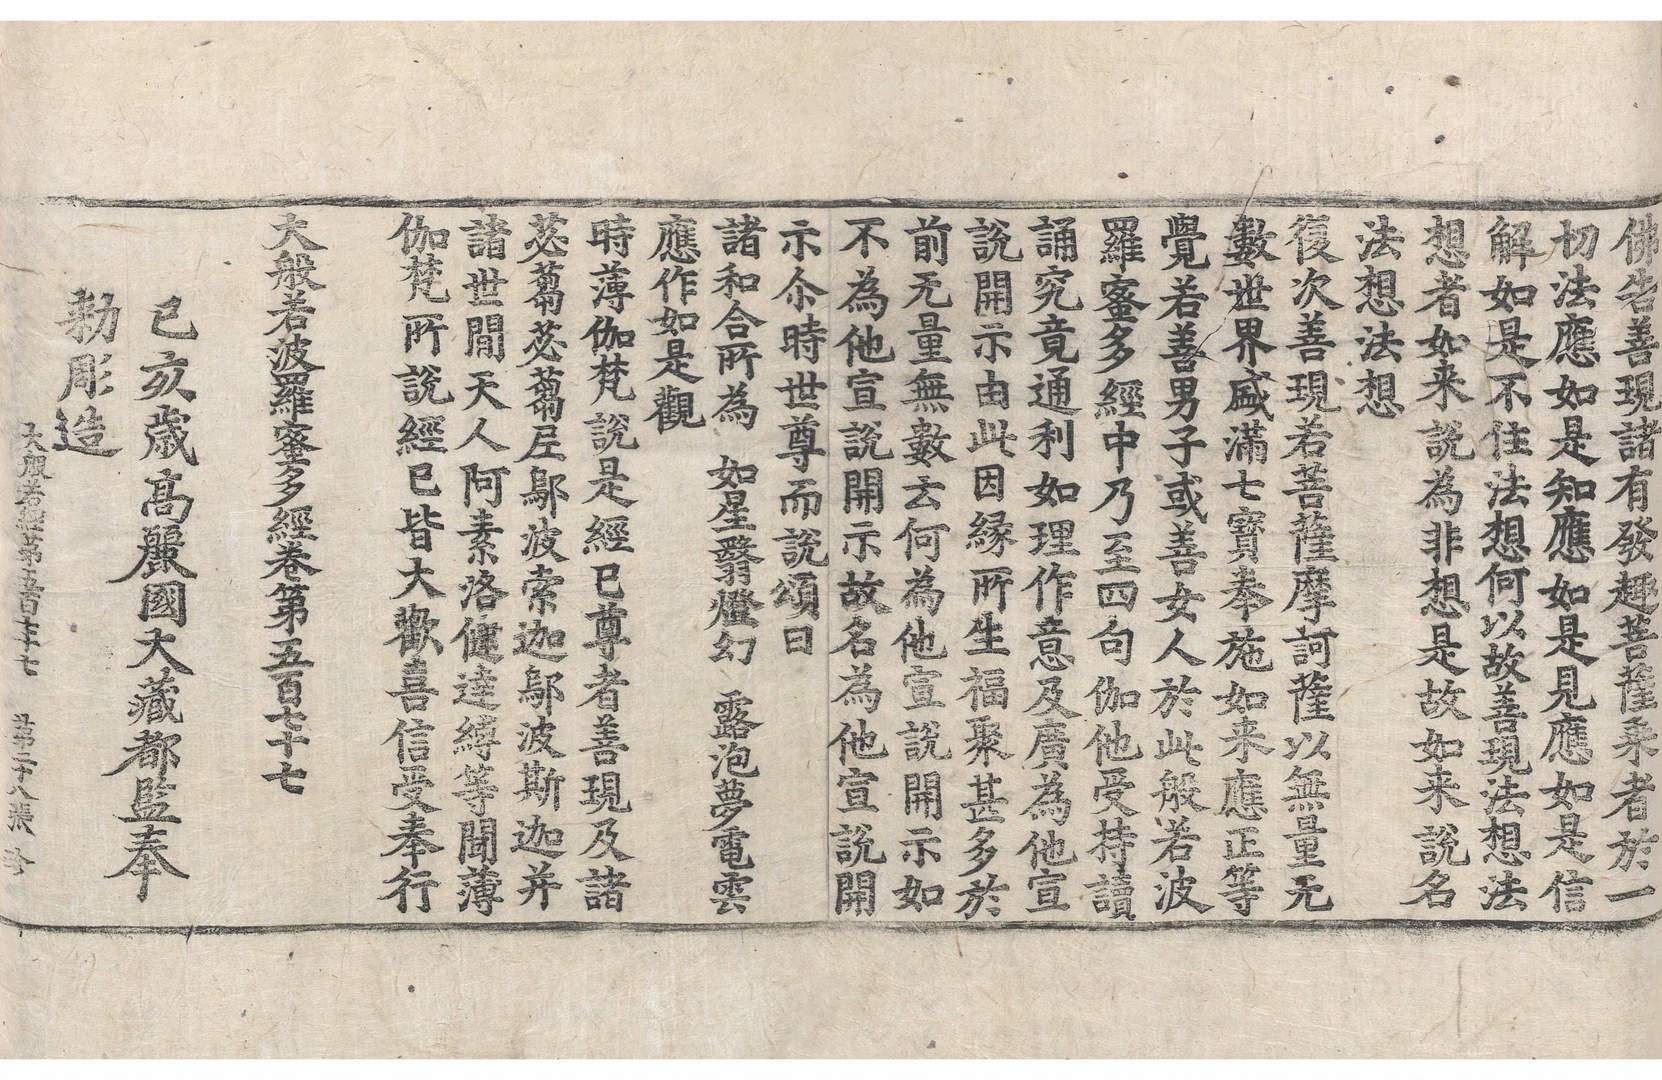 佛告善現諸有發趣菩薩乗者於一
切法應如是知應如是見應如是信
解如是不住法想何以故善現法想法
想者如来說為非想是故如来說名
法想法想
復次善現若菩薩摩訶薩以無量无
數世界盛滿七寳奉施如来應正等
覺若善男子或善女人於此般若波
羅蜜多經中乃至四句伽他受持讀
誦究竟通利如理作意及廣為他宣
說開示由此因緣所生福聚甚多於
前无量無數云何為他宣說開示如
不為他宣說開示故名為他宣說開
示尒時世尊而說頌曰
諸和合所為 如星翳燈幻 露泡夢電雲
應作如是觀
時薄伽梵說是經已尊者善現及諸
苾蒭苾蒭尼鄔波索迦鄔波斯迦并
諸世間天人阿素洛健達縛等聞薄
伽梵所說經已皆大歡喜信受奉行
大般若波羅蜜多經卷第五百七十七
己亥歲高麗國大藏都監奉
勑彫造
大般若經第五百七十七 第二十八張 珍